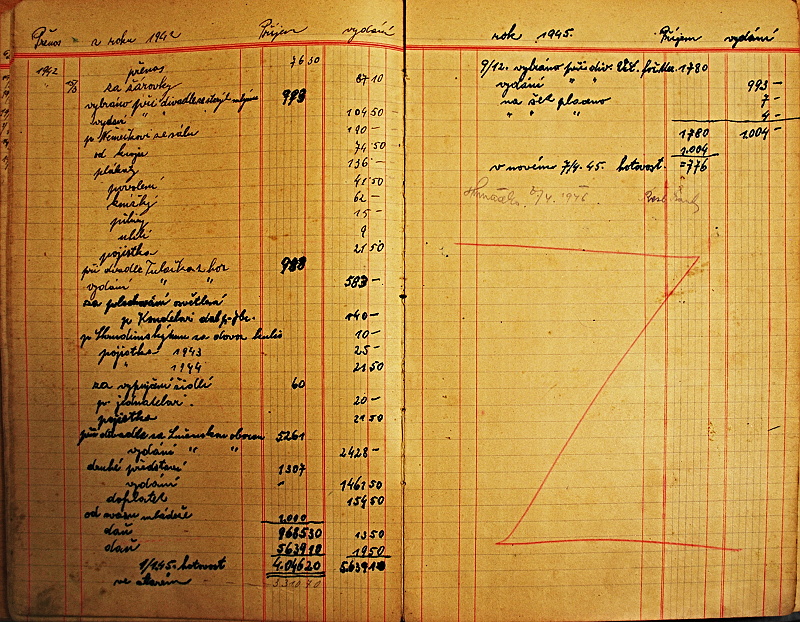 Přenos z roku 1942 Příjem vydání
1942 přenos 7630
za žárovky 8710
vybráno při divadle 993
vydání " " 10450
p. Němečkovi za sálu 120 –
od kroju 7450
plakáty 136 –
povolení 4150
knížky 62 –
pilníky 15 –
uhlí 9
pojistka 2150
při divadle 988
vydání " " 583 –
za osvětlení
p. Kondelovi 140 –
za dovoz kulis 10 –
pojistka 1943 25 –
" 1944 2150
za vypujčení židlí 60
p. jednatelovi 20 –
pojistka 2150
při divadle za oborem 5261
vydání " " 2428 –
druhé představení 1307
vydání " 146150
doplatek 15450
od svazu mládeže 2.000
daň 968530 1350
daň 563910 1950
1/1 45. hotovost 4.04620 563910
ve starém
rok 1945. Příjem vydání
9/12. vybráno při div. 1780
vydání " 993 –
na 7 –
" " " 4 –
1780 1.004 –
1.004
v novém 7/4. 45. hotovost. = 776